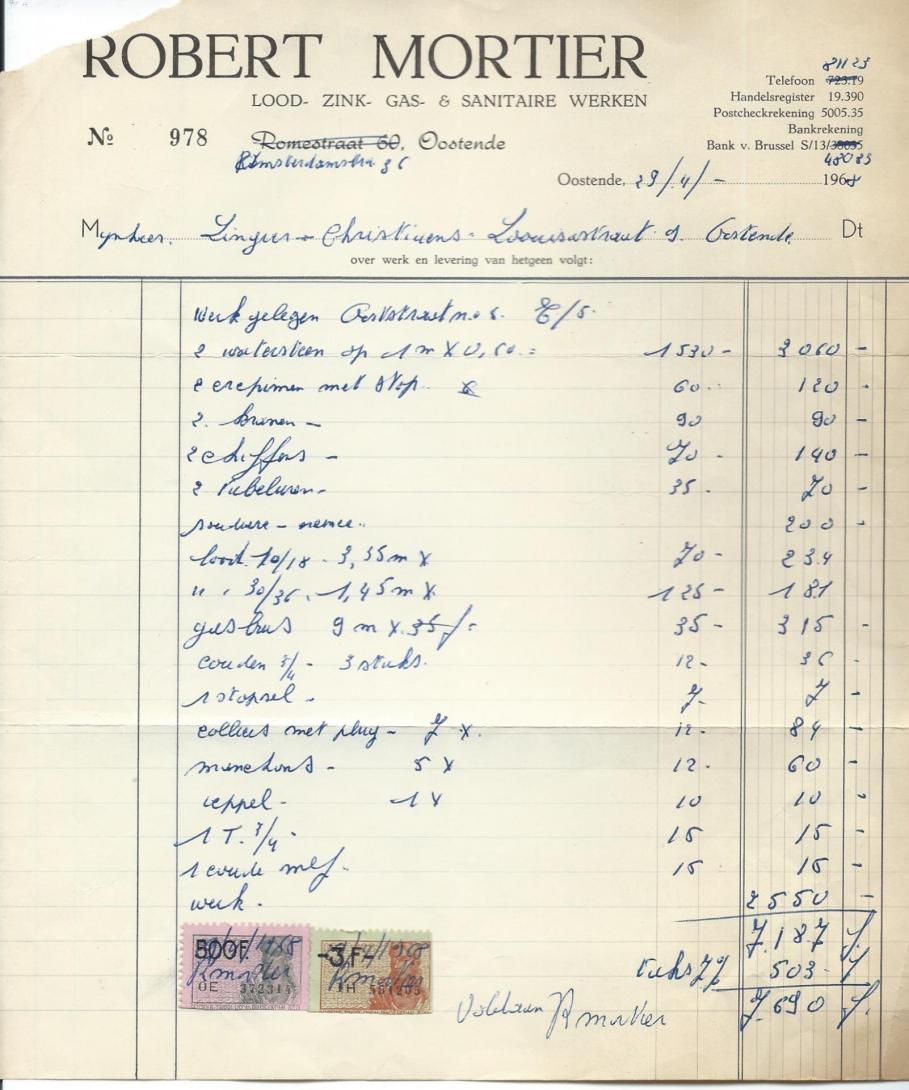 ROBERT MORTIER
LOOD- ZINK- GAS- & SANITAIRE WERKEN
81123
Telefoon 723.19
Handelsregister 19.390
Postcheckrekening 5005.35
Bankrekening
Bank v. Brussel S/13/38695
48083
№ 978 Romestraat 60, Oostende
Amsterdamstra 36
Oostende, 29/4/- 1968
Mynheer. Lingier - Christiaens - Louisastraat 9. Oostende Dt
over werk en levering van hetgeen volgt:
Werk gelegen
2 watersteen op 1 m X 0,60 = 1530 - 3060 -
2 crepinen met stop 60 120 -
2. 90 90 -
2 chiffons - 70 - 140 -
2 tubeluren - 35 - 70 -
soudure - 200 -
lood 10/18 - 3,35 m X 70 - 234
" . 30/36 . 1,45 m X 125 - 181
gasbuis 9 m X 35 f = 35 - 315 -
couden 3/4 - 3 stuks. 12 - 36 -
1 stopsel - 7 - 7 -
colliers met plug - 7 x. 12 - 84 -
manchons - 5 X 12 - 60 -
neppel - 1 X 10 10 -
1 T. 3/4 - 15 15 -
1 coude mlf. 15 15 -
werk - 2550 -
7.187 f.
taks 7% 503 - f
7.690 f.
500F
OE 372314
-3.F-
1H
R Mortier
Voldaan R Mortier